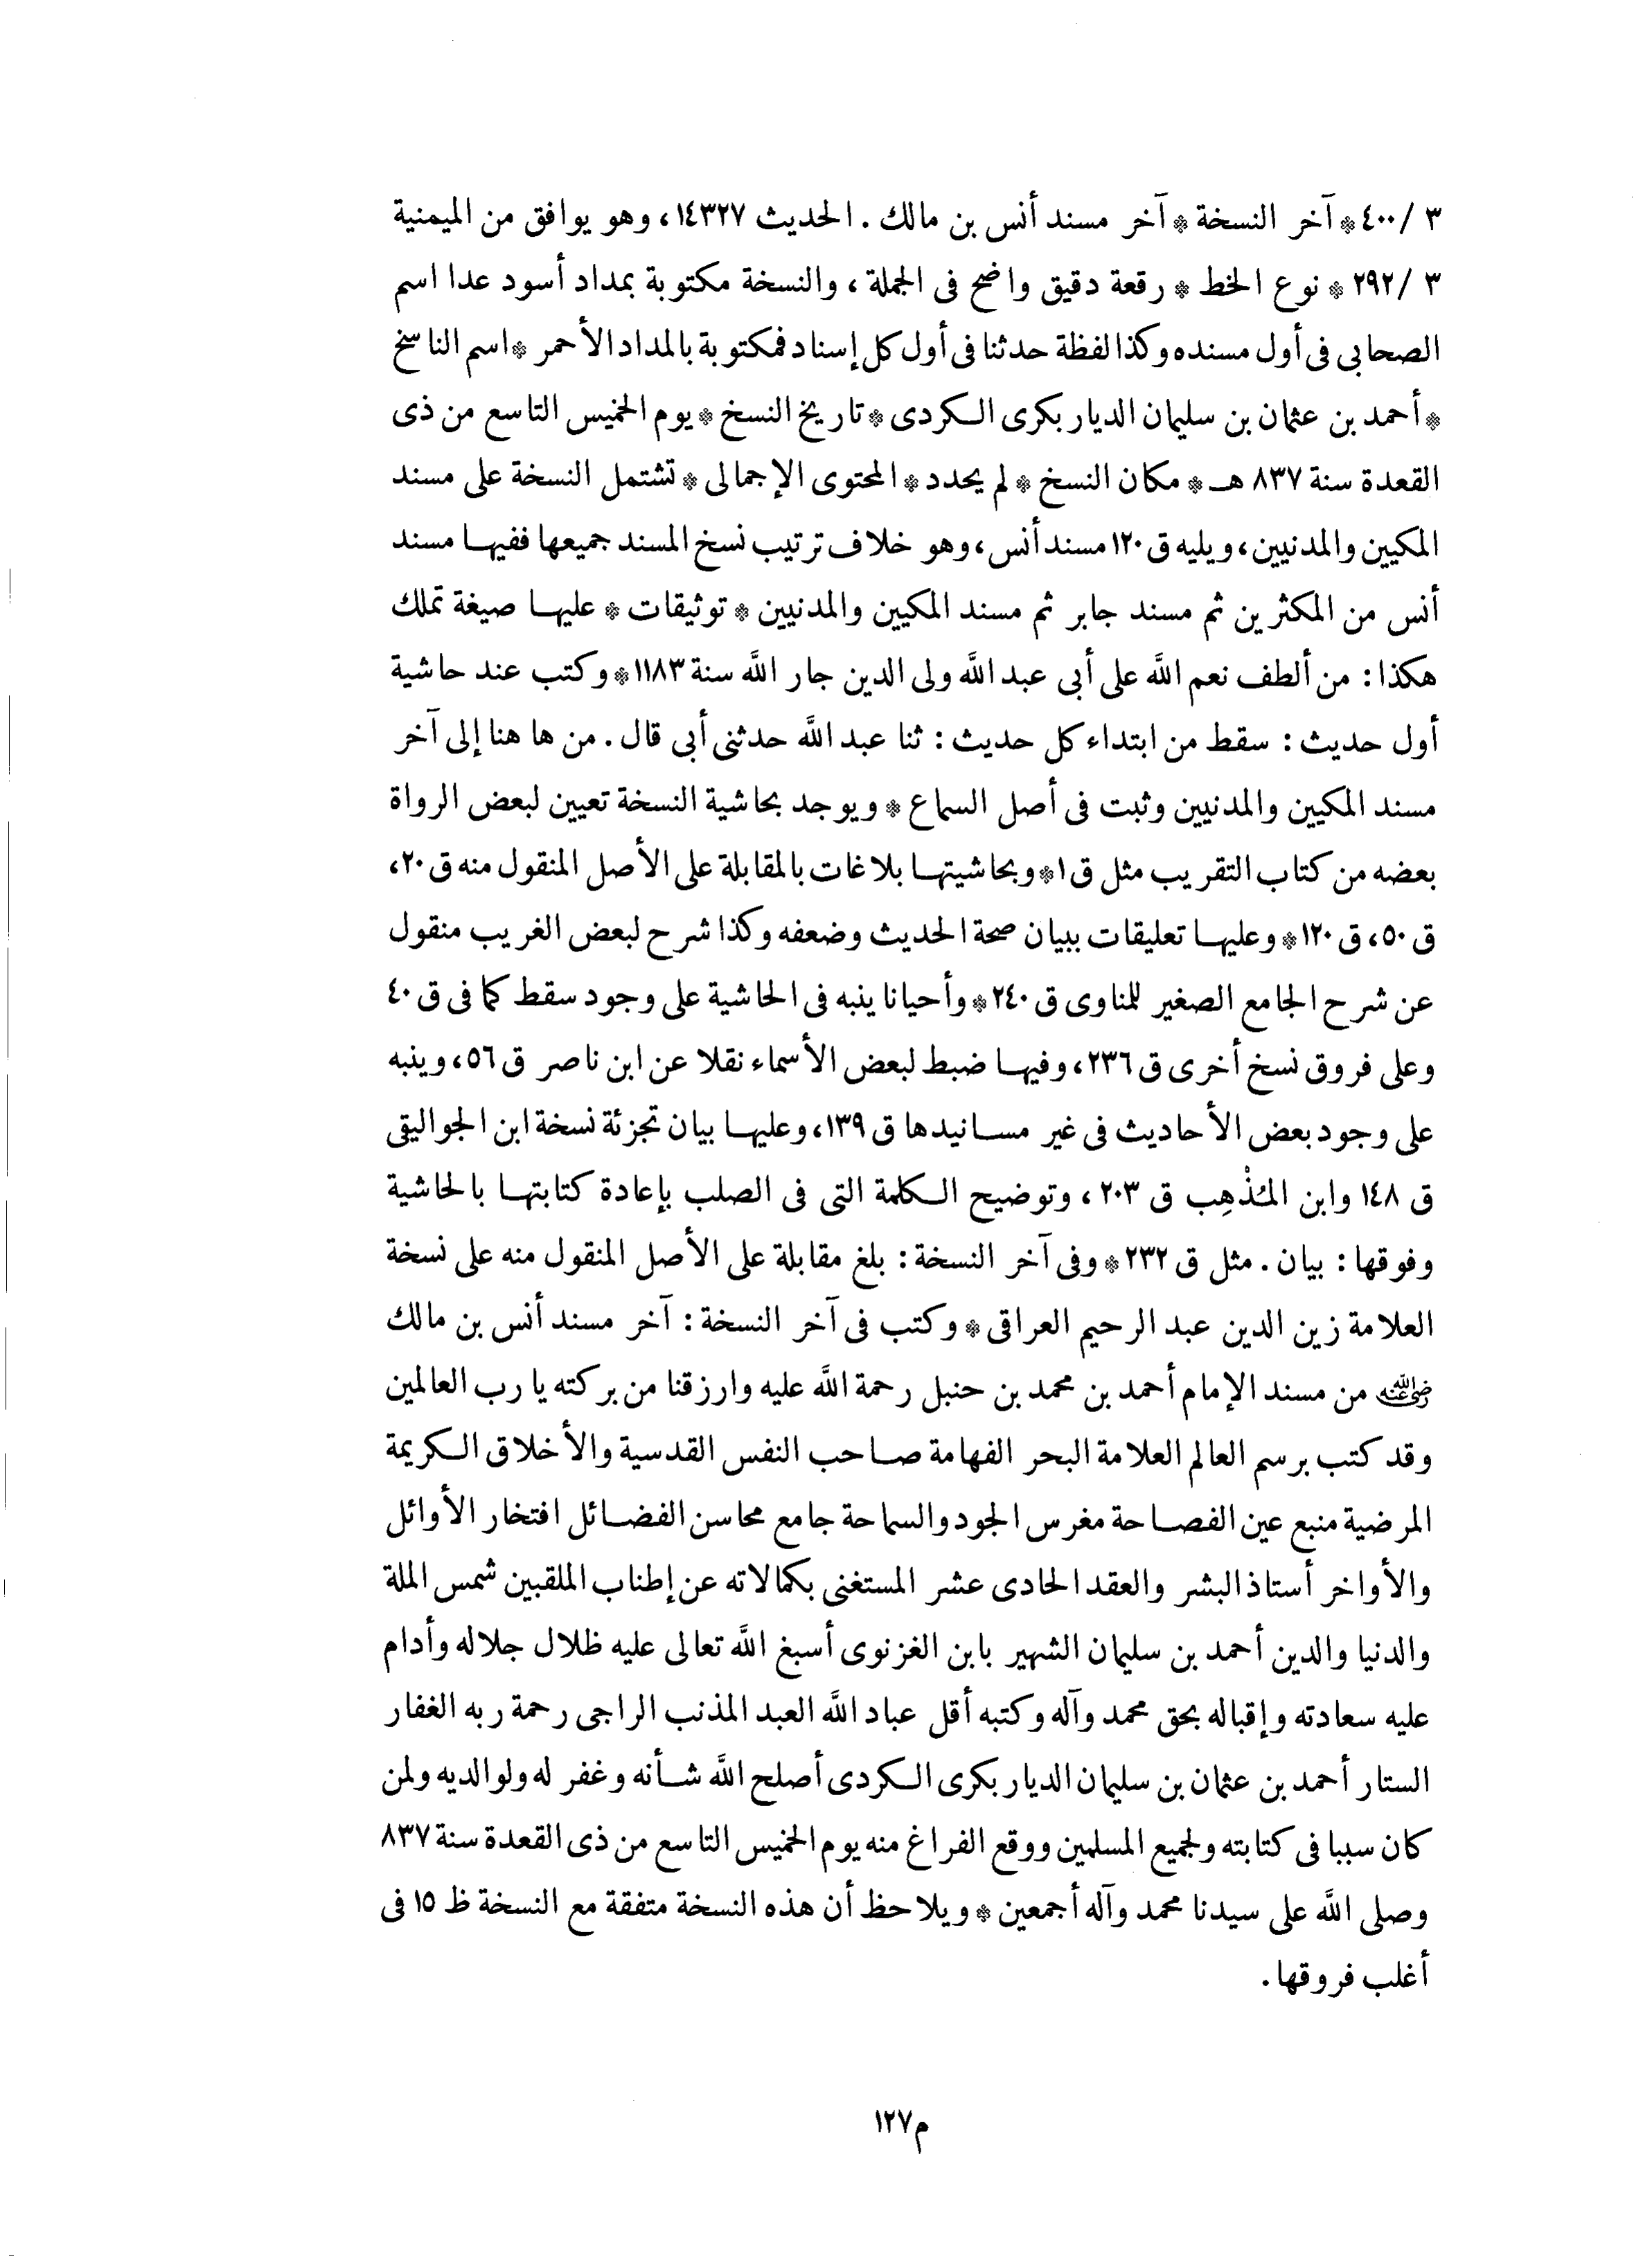 ٣ /٤٠٠ * آخر النسخة * آخر مسند أنس بن مالك . الحديث ١٤٣٢٧، وهو يوافق من الميمنية
٣ /٢٩٢ * نوع الخط * رقعة دقيق واضح فى الجملة ، والنسخة مكتوبة بمداد أسود عدا اسم
الصحابى فى أول مسنده وكذا لفظة حدثنا فى أول كل إسناد فمكتوبة بالمداد الأحمر * اسم الناسخ
* أحمد بن عثمان بن سليمان الديار بكرى الكردى * تاريخ النسخ * يوم الخميس التاسع من ذى
القعدة سنة ٨٣٧ هـ * مكان النسخ * لم يحدد * المحتوى الإجمالى * تشتمل النسخة على مسند
المكيين والمدنيين، ويليه ق ١٢٠ مسند أنس، وهو خلاف ترتيب نسخ المسند جميعها ففيها مسند
أنس من المكثرين ثم مسند جابر ثم مسند المكيين والمدنيين * توثيقات * عليها صيغة تملك
هكذا : من ألطف نعم اللَّه على أبى عبد اللَّه ولى الدين جار اللَّه سنة ١١٨٣ * وكتب عند حاشية
أول حديث : سقط من ابتداء كل حديث : ثنا عبد اللَّه حدثنى أبى قال . من ها هنا إلى آخر
مسند المكيين والمدنيين وثبت فى أصل السماع * ويوجد بحاشية النسخة تعيين لبعض الرواة
بعضه من كتاب التقريب مثل ق ١ * وبحاشيتها بلاغات بالمقابلة على الأصل المنقول منه ق ٢٠،
ق ٥٠، ق ١٢٠ * وعليها تعليقات ببيان صحة الحديث وضعفه وكذا شرح لبعض الغريب منقول
عن شرح الجامع الصغير للمناوى ق ٢٤٠ * وأحيانا ينبه فى الحاشية على وجود سقط كما فى ق ٤٠
وعلى فروق نسخ أخرى ق ٢٣٦، وفيها ضبط لبعض الأسماء نقلا عن ابن ناصر ق ٥٦، وينبه
على وجود بعض الأحاديث فى غير مسانيدها ق ١٣٩، وعليها بيان تجزئة نسخة ابن الجواليقى
ق ١٤٨ وابن المُذْهِب ق ٢٠٣ ، وتوضيح الكلمة التى فى الصلب بإعادة كتابتها بالحاشية
وفوقها : بيان . مثل ق ٢٣٢ * وفى آخر النسخة : بلغ مقابلة على الأصل المنقول منه على نسخة
العلامة زين الدين عبد الرحيم العراقى * وكتب فى آخر النسخة : آخر مسند أنس بن مالك
رضي الله عنه من مسند الإمام أحمد بن محمد بن حنبل رحمة اللَّه عليه وارزقنا من بركته يا رب العالمين
وقد كتب برسم العالم العلامة البحر الفهامة صاحب النفس القدسية والأخلاق الكريمة
المرضية منبع عين الفصاحة مغرس الجود والسماحة جامع محاسن الفضائل افتخار الأوائل
والأواخر أستاذ البشر والعقد الحادى عشر المستغنى بكمالاته عن إطناب الملقبين شمس الملة
والدنيا والدين أحمد بن سليمان الشهير بابن الغزنوى أسبغ اللَّه تعالى عليه ظلال جلاله وأدام
عليه سعادته وإقباله بحق محمد وآله وكتبه أقل عباد اللَّه العبد المذنب الراجى رحمة ربه الغفار
الستار أحمد بن عثمان بن سليمان الديار بكرى الكردى أصلح اللَّه شأنه وغفر له ولوالديه ولمن
كان سببا فى كتابته ولجميع المسلمين ووقع الفراغ منه يوم الخميس التاسع من ذى القعدة سنة ٨٣٧
وصلى اللَّه على سيدنا محمد وآله أجمعين * ويلاحظ أن هذه النسخة متفقة مع النسخة ظ ١٥ فى
أغلب فروقها .
م١٢٧